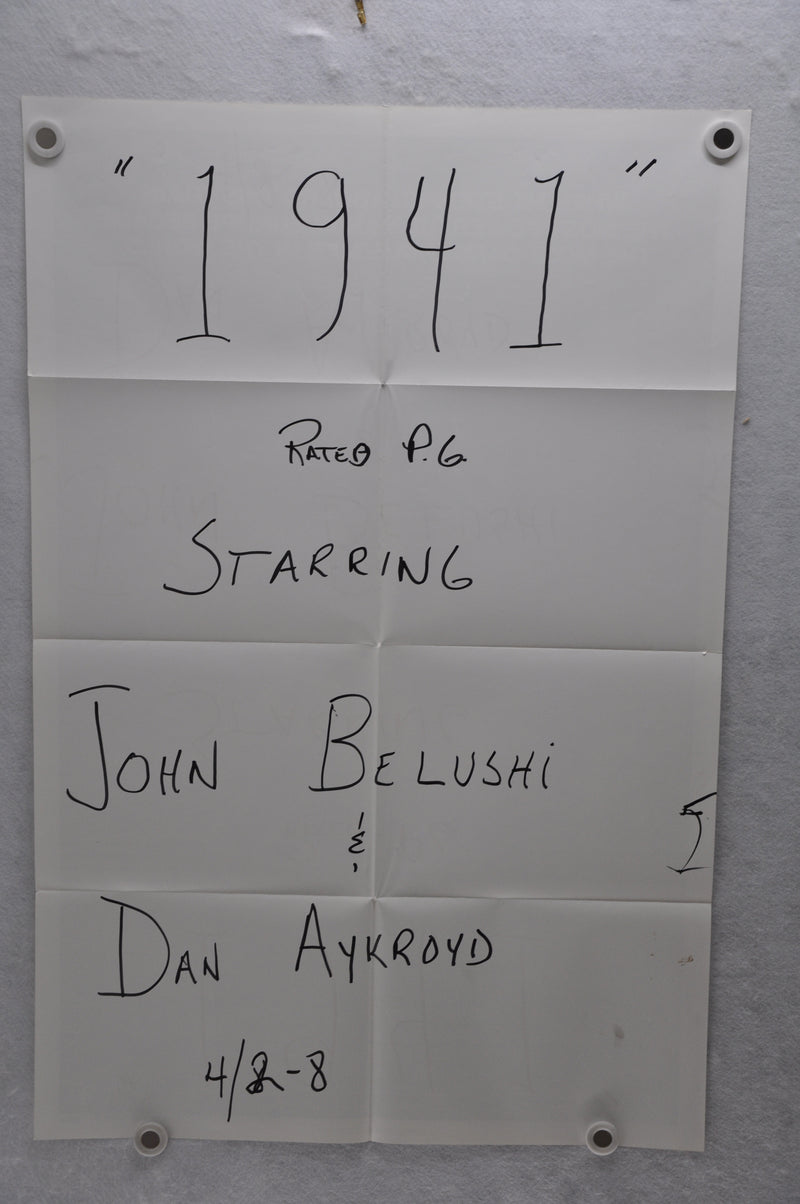 "1941"
RATED P.G.
STARRING
JOHN BELUSHI
&
DAN AYKROYD
4/2-8